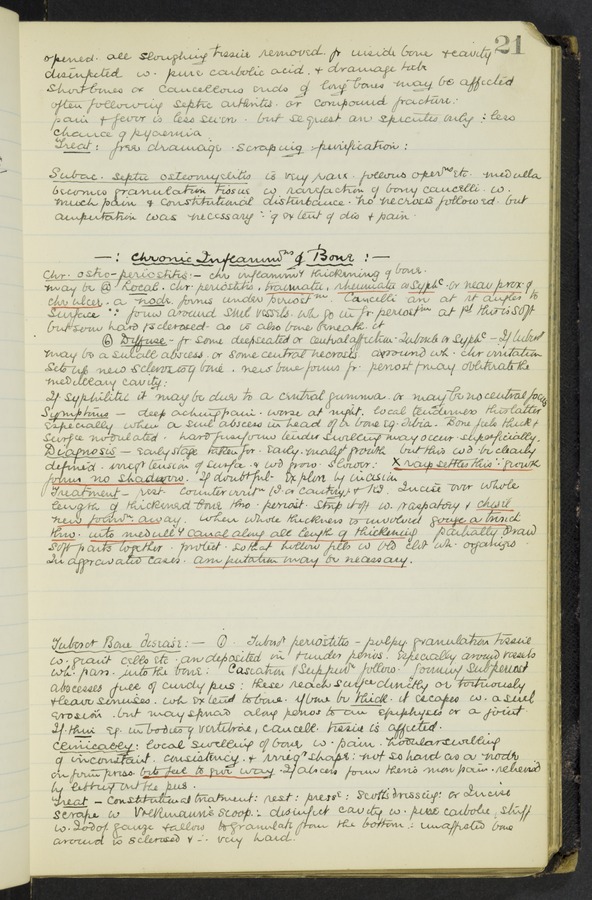 21
opened. all sloughing tissue removed fr inside bone & cavity
disinfected w. pure carbolic acid. & drainage tube
Short bones or Cancellous ends of long bones may be affected
often following septic arthritis. or compound fracture:
pain & fever is less severe. but sequest are spicules only: less
chance of pyaemia
Treat: free drainage. scraping & purification:
Subac. septic osteomyelitis is very rare. follows oper^ns etc. medulla
becomes granulation tissue w rarefaction of bony cancelli. w.
much pain & constitutional disturbance. no necrosis followed. but
amputation was necessary ∵ of extent of dis & pain.
—: Chronic Inflamm^ns of Bone :—
Chr. osteo-periostitis:— chr inflamm^n & thickening of bone.
may be (a) Local. chr. periostitis, traumatic, rheumatic or Syph^c. or near prox of
chr ulcer. a node forms under periost^m. Cancelli are at rt angles to
Surface ∵ form around small vessels. wh go in fr periost^m at 1st this is soft
but soon hard & sclerosed as is also bone beneath it
(b) Diffuse - fr some deepseated or central affection. Tubercle or Syph^c - If tubercl
may be a small abscess, or some central necrosis around wh. chr irritation
sets up new sclerosing bone. new bone forms fr periost & may obliterate the
medullary cavity:
If syphilitic it may be due to a central gumma. or may be no central focus
Symptoms - deep aching pain. worse at night. local tenderness this latter
especially when a small abscess in head of a bone eg. tibia. Bone feels thick &
surface nodulated. hard fusiform tender swelling may occur superficially.
Diagnosis - early stage taken for. early malig^t growth but this wd be clearly
defined. irreg tension of surface & wd grow slower: X rays settles this: growth
forms no shadow. If doubtful. Explore by incision
Treatment - rest. counter irrit^n & KI. Incise over whole
length of thickened bone thro. periost. strip it off w. raspatory & chisel
new form^n away. when whole thickness is involved gouge a trench
thro. into medull^y canal along all length of thickening partially draw
soft parts together. protect. so that hollow fills w bld clot wh. organises.
In aggravated cases. amputation may be necessary.
Tubercr Bone disease:— (1). Tuberc^r periostitis - pulpy granulation tissue
w. giant cells etc. are deposited in & under perios. especially around vessels
wh. pass into the bone: Caseation & Suppur^n follow. forming subperiost
abscesses full of curdy pus: these reach surface directly or tortuously
& leave sinuses. wh extend to bone. If bone be thick. it escapes w. a small
erosion. but may spread along perios to an epiphysis or a joint.
If thin eg. in bodies of vertebrae, cancell. tissue is affected.
Clinically: local swelling of bone w. pain. nodular swelling
of inconstant. consistency. & irreg^r shape: not so hard as a node
on firm press. bits feel to give way. If abscess form there's more pain. relieved
by letting out the pus.
Treat - Constitutional treatment: rest: press: Scotts dressing: or Incise
scrape w Volkmann's scoop: disinfect cavity w. pure carbolic, stuff
w. Iodof gauze & allow to granulate from the bottom: unaffected bone
around is sclerosed & ∴ very hard.